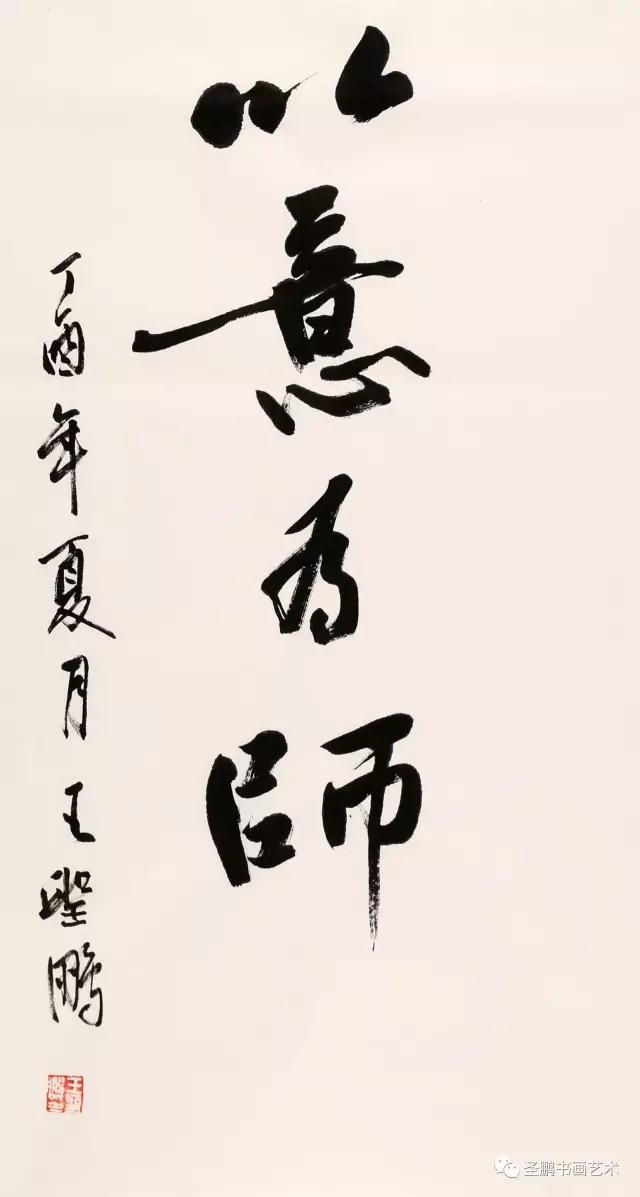 以意为師
丁酉年夏月王聖鵬
圣鹏书画艺术